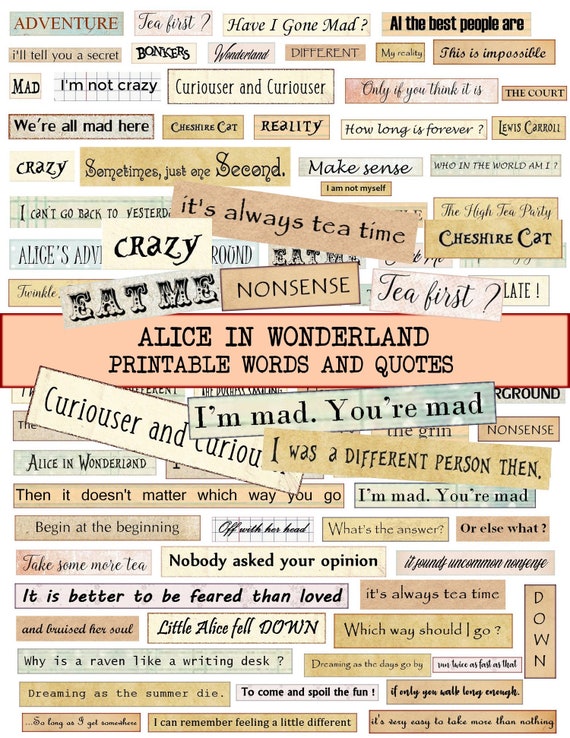 ADVENTURE
Tea first ?
Have I Gone Mad ?
Al the best people are
i'll tell you a secret
BONKERS
Wonderland
DIFFERENT
My reality
This is impossible
MAD
I'm not crazy
Curiouser and Curiouser
Only if you think it is
THE COURT
We're all mad here
CHESHIRE CAT
REALITY
How long is forever ?
LEWIS CARROLL
CRAZY
Sometimes, just one Second.
Make sense
WHO IN THE WORLD AM I ?
I am not myself
I CAN'T GO BACK TO YESTERDA
it's always tea time
The High Tea Party
CHESHIRE CAT
ALICE'S ADV
CRAZY
GROUND
EAT ME
Twinkle,
EAT ME
NONSENSE
Tea first ?
LATE !
ALICE IN WONDERLAND
PRINTABLE WORDS AND QUOTES
DIFFERENT
RGROUND
Curiouser and Curiou
I'm mad. You're mad
The
the grin
NONSENSE
ALICE IN WONDERLAND
I WAS A DIFFERENT PERSON THEN.
Then it doesn't matter which way you go
I'm mad. You're mad
Begin at the beginning
Off with her head
What's the answer?
Or else what ?
Take some more tea
Nobody asked your opinion
it sounds uncommon nonsense
It is better to be feared than loved
it's always tea time
DOWN
and bruised her soul
Little Alice fell DOWN
Which way should I go ?
Why is a raven like a writing desk ?
Dreaming as the days go by
run twice as fast as that
Dreaming as the summer die.
To come and spoil the fun !
if only you walk long enough.
...So long as I get somewhere
I can remember feeling a little different
it's very easy to take more than nothing